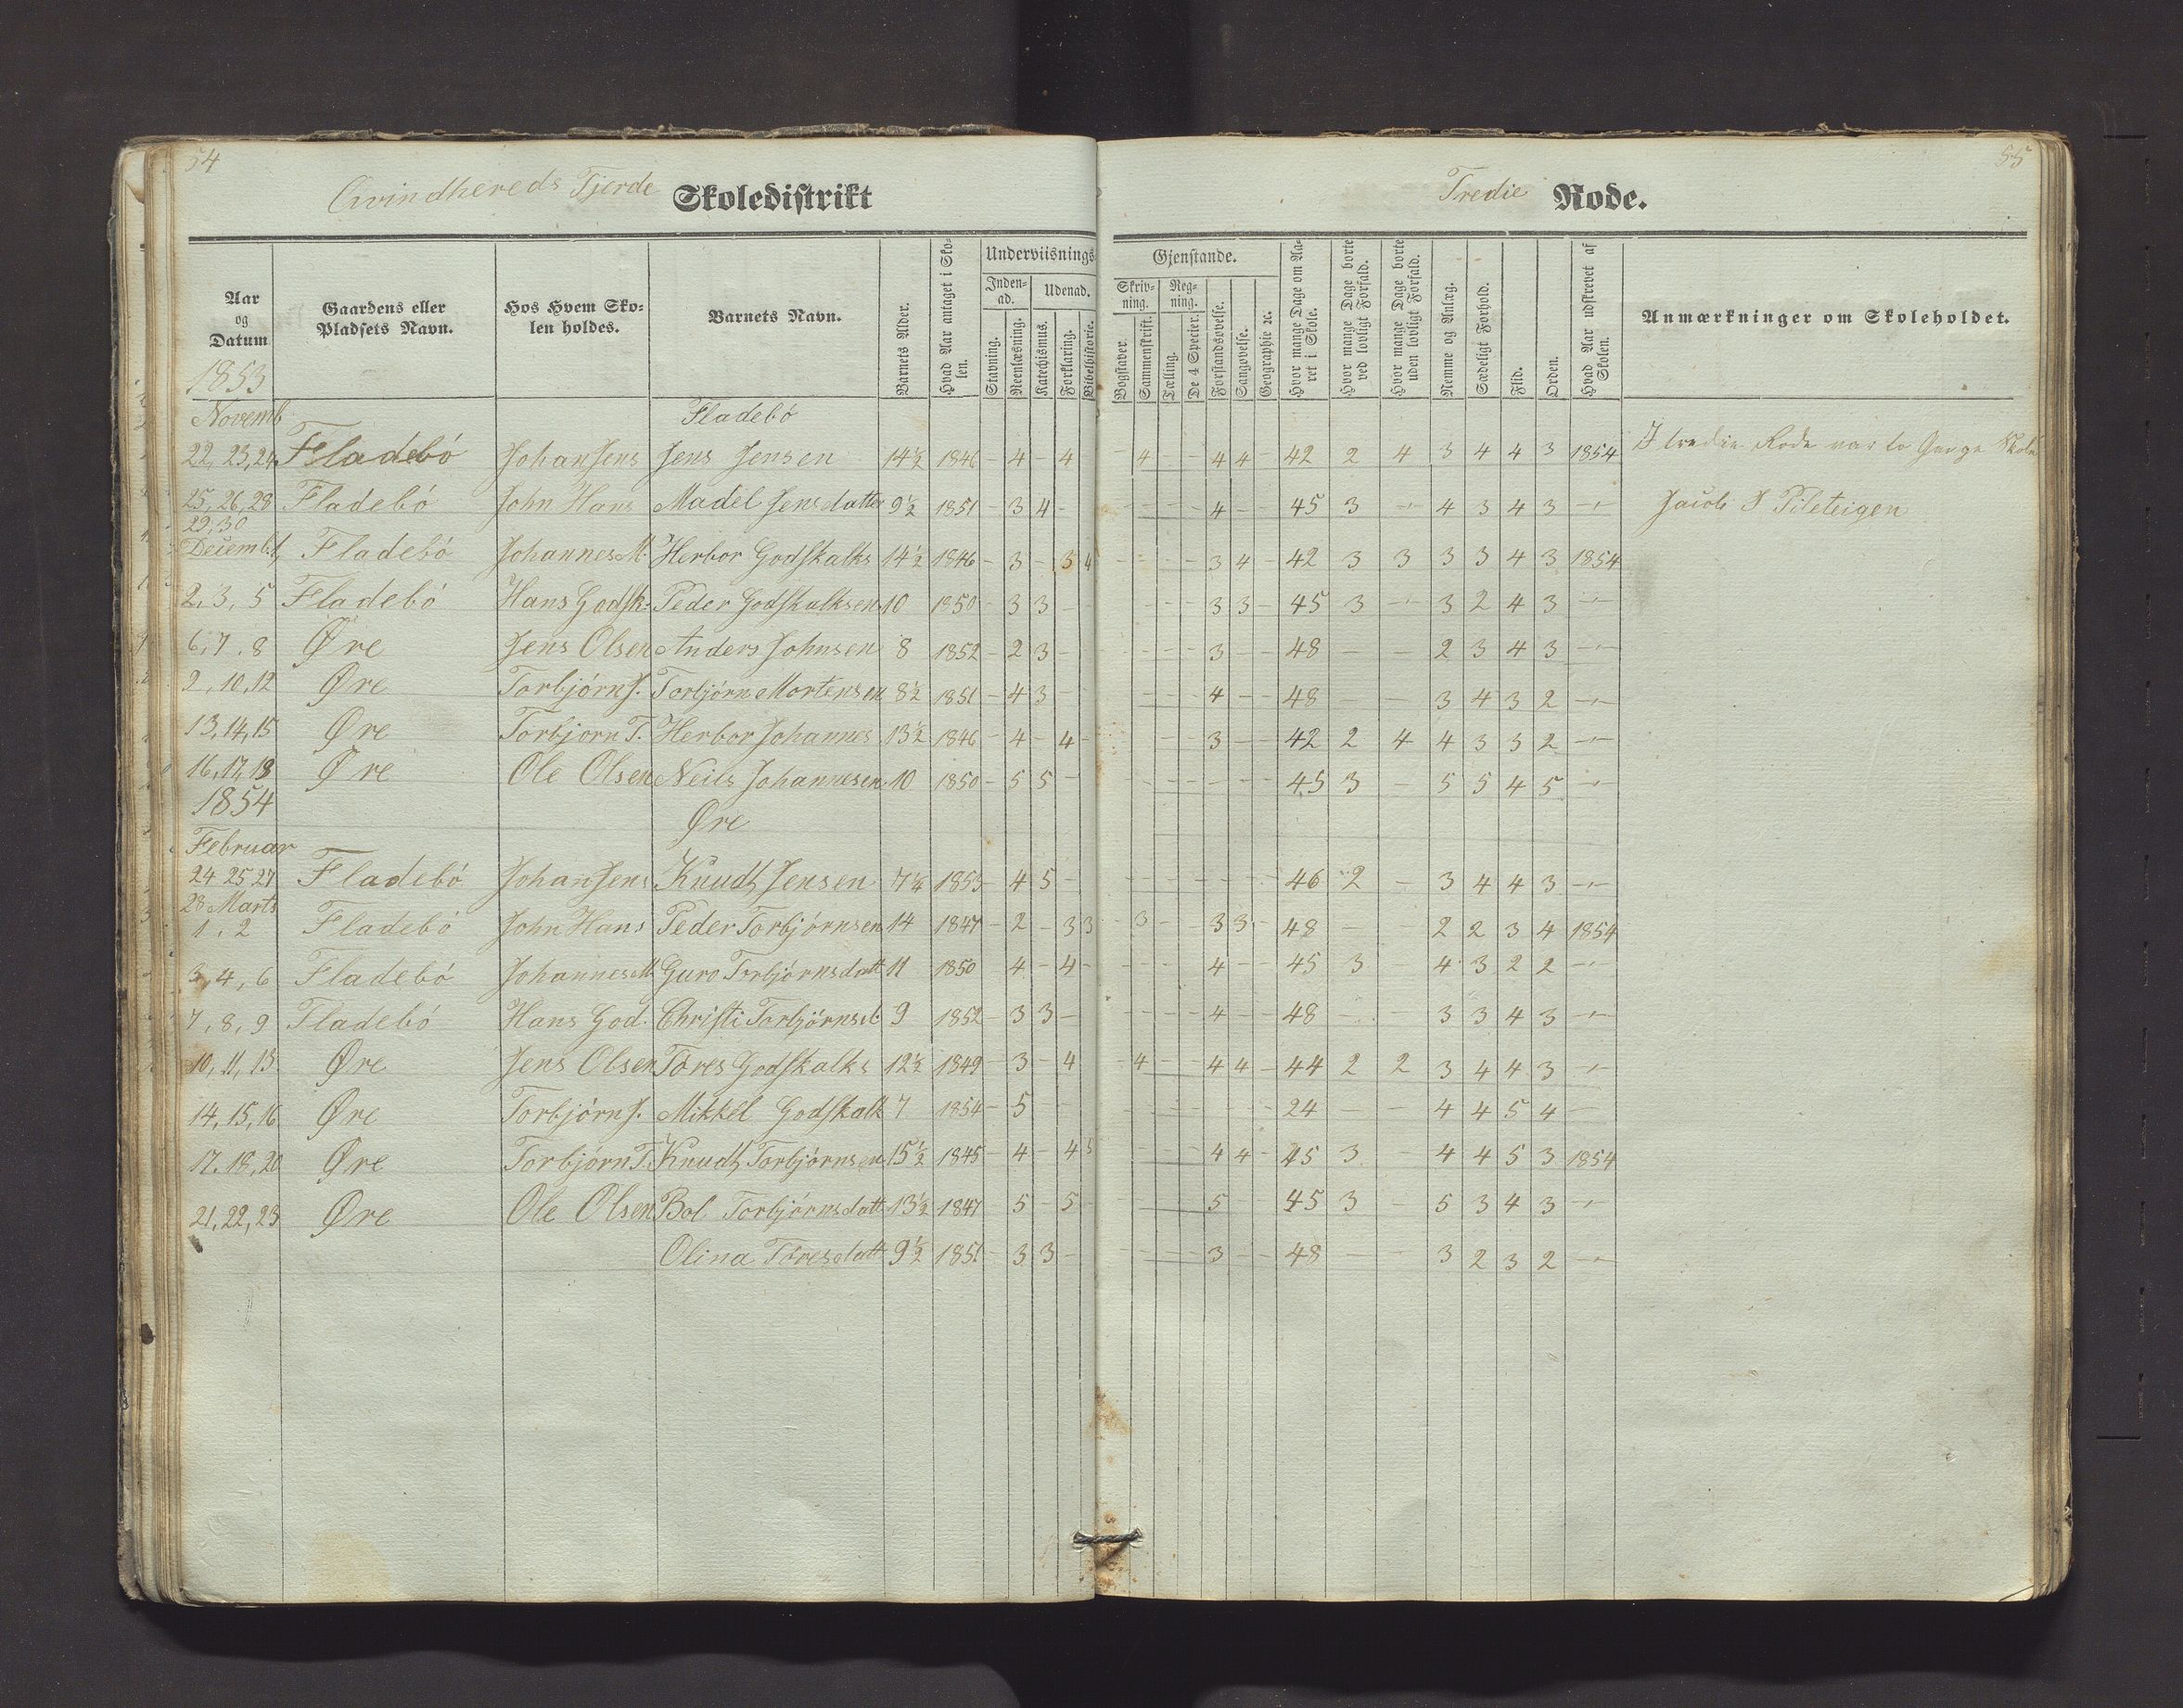 54
Qvindhereds Fjerde Skoledistrikt
Aar og Datum
Gaardens eller Pladsets Navn.
Hos Hvem Skolen holdes.
Barnets Navn.
Barnets Alder.
Hvad Aar antaget i Skolen.
Underviisnings-
Inden-ad.
Udenad.
Stavning.
Reenlæsning.
Katechismus.
Forklaring.
Bibelhistorie.
1853
Novemb Fladebó
22, 23, 24 Fladebó Johan Jens Jens Jensen 14½ 1846 - 4 - 4
25, 26, 28 Fladebó John Hans Madel Jensdatter 9½ 1851 - 3 4 -
29, 30
Decemb 1, Fladebó Johannes M. Herbor Godskalks 14½ 1846 - 3 - 3 4
2, 3, 5 Fladebó Hans Godsk: Peder Godskalksen 10 1850 - 3 3 -
6, 7, 8 Øre Jens Olsen Anders Johnsen 8 1852 - 2 3 -
9, 10, 12 Øre Torbjórn J. Torbjórn Mortensen 8½ 1851 - 4 3 -
13, 14, 15 Øre Torbjorn T. Herbor Johannes 13½ 1846 - 4 - 4 -
16, 17, 18 Øre Ole Olsen Neils Johannesen 10 1850 - 5 5 -
1854
Øre
Februar
24 25 27 Fladebó Johan Jens Knudt Jensen 7¼ 1853 - 4 5 -
28 Marts
1, 2 Fladebó John Hans Peder Torbjórnsen 14 1847 - 2 - 3 3
3, 4, 6 Fladebó Johannes M Guro Torbjórnsdatt 11 1850 - 4 - 4 -
7, 8, 9 Fladebó Hans God. Christi Torbjórnsd: 9 1852 - 3 3 -
10, 11, 13 Øre Jens Olsen Tóres Godskalks 12½ 1849 - 3 - 4
14, 15, 16 Øre Torbjórn J. Mikkel Godskalk 7 1854 - 5 - -
17, 18, 20 Øre Torbjórn T. Knudt Torbjórnsen 15½ 1845 - 4 - 4 5
21, 22, 23 Øre Ole Olsen Bol Torbjórnsdatt 13½ 1847 - 5 - 5 -
Olina Tóresdatt 9½ 1851 - 3 3 -
55
Tredie Rode.
Gjenstande.
Skriv-ning.
Reg-ning.
Bogstaver.
Sammenskrift.
Tælling.
De 4 Specier.
Forstandsøvelse.
Sangøvelse.
Geographie ɾc.
Hvor mange Dage om Aaret i Skole.
Hvor mange Dage borte ved lovligt Forfald.
Hvor mange Dage borte uden lovligt Forfald.
Nemme og Anlæg.
Sædeligt Forhold.
Flid.
Orden.
Hvad Aar udskrevet af Skolen.
Anmærkninger om Skoleholdet.
- 4 - - 4 4 - 42 2 4 3 4 4 3 1854 I tredie Rode var to Gange Skole
- - - - 4 - - 45 3 - 4 3 4 3 -"- Jacob J Pileteigen
- - - - 3 4 - 42 3 3 3 3 4 3 1854
- - - - 3 3 - 45 3 - 3 2 4 3 -"-
- - - - 3 - - 48 - - 2 3 4 3 -"-
- - - - 4 - - 48 - - 3 4 3 2 -"-
- - 3 - - 42 2 4 4 3 3 2 -"-
- - - - - - - 45 3 - 5 5 4 5 -"-
- - - - - - - 46 2 - 3 4 4 3 -"-
- 3 - - 3 3 - 48 - - 2 2 3 4 1854
- - - - 4 - - 45 3 - 4 3 2 2 -"-
- - - - 4 - - 48 - - 3 3 4 3 -"-
- 4 - - 4 4 - 44 2 2 3 4 4 3 -"-
- - - - - - - 24 - - 4 4 5 4 -
- - - - 4 4 - 45 3 - 4 4 5 3 1854
- - - - 5 - - 45 3 - 5 3 4 3 -"-
- - - - 3 - - 48 - - 3 2 3 2 -"-